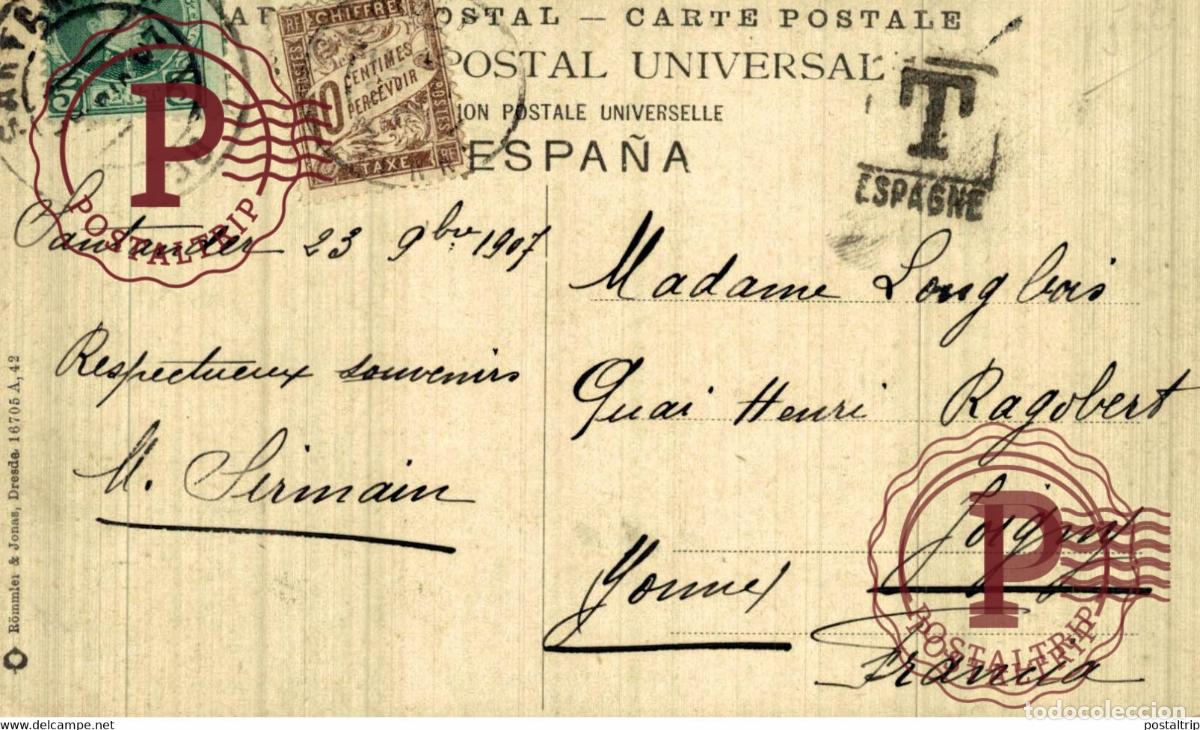 POSTAL — CARTE POSTALE
POSTAL UNIVERSAL
ION POSTALE UNIVERSELLE
ESPAÑA
CHIFFRE
CENTIMES
À
PERCEVOIR
TAXE
POSTES
RF
T
ESPAGNE
P
POSTALTRIP
Santander 23 9bre 1907
Respectueux souvenirs
M. Sirmain
Madame Longbois
Quai Henri Ragobert
Joigny
Yonne
Francia
Römmler & Jonas, Dresde 16705 A, 42
P
POSTALTRIP
todocoleccion
www.delcampe.net
postaltrip